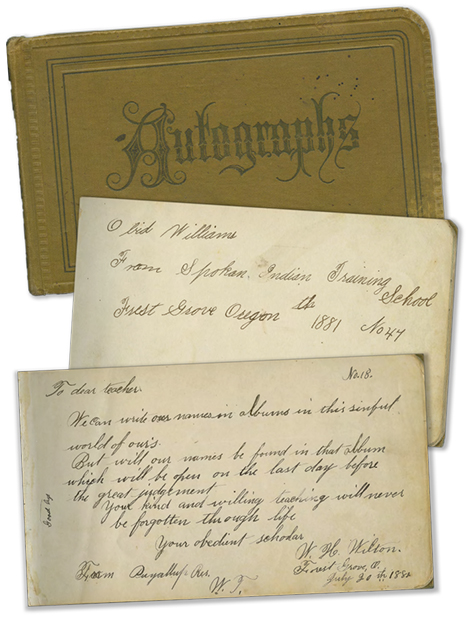 Autographs
Obid Williams
From Spokan. Indian Training
School
Forest Grove Oregon th 1881 No 47
No. 18.
To dear teacher.
We can write our names in albums in this sinful
world of our's.
But will our names be found in that album
which will be open on the last day before
the great judgement
Your kind and willing teaching will never
be forgotten through life
Your obedient scholar
W. H. Wilson.
From Puyallup Res.
W. T.
Forest Grove, O.
July 20th, 1882
Good by